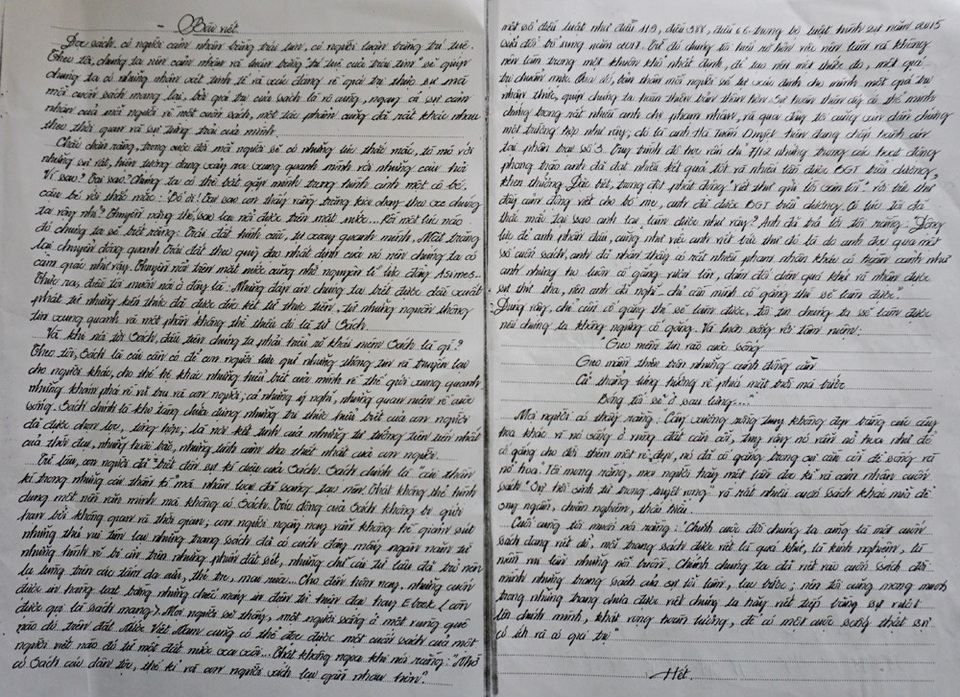 Bài viết.
Đọc sách, có người cảm nhận bằng trái tim, có người luận bằng trí tuệ.
Theo tôi, chúng ta nên cảm nhận và luận bằng trí tuệ của trái tim sẽ giúp
chúng ta có những nhận xét tinh tế và xác đáng về giá trị thực sự mà
mỗi cuốn sách mang lại, bởi giá trị của sách là vô cùng, ngay cả sự cảm
nhận của mỗi người về một cuốn sách, một tác phẩm cũng đã rất khác nhau
theo thời gian và sự từng trải của mình.
Chắc chắn rằng, trong cuộc đời mỗi người sẽ có những lúc thắc mắc, tò mò với
những sự vật, hiện tượng đang xảy ra xung quanh mình với những câu hỏi
Vì sao? Tại sao? Chúng ta có thể bắt gặp mình trong hình ảnh một cô bé,
cậu bé với thắc mắc: "Bố ơi! Tại sao con thấy vầng trăng kia chạy theo xe chúng
ta vậy nhỉ? Thuyền nặng thế, sao lại nổi được trên mặt nước... Rồi một lúc nào
đó chúng ta sẽ biết rằng: Trái đất hình cầu, tự xoay quanh mình, Mặt trăng
lại chuyển động quanh Trái đất theo quỹ đạo nhất định của nó nên chúng ta có
cảm giác như vậy. Thuyền nổi trên mặt nước cũng nhờ nguyên lí lực đẩy Asimes...
Thực ra, điều tôi muốn nói ở đây là: Những đáp án chúng ta biết được đều xuất
phát từ những kiến thức đã được đúc kết từ thực tiễn, từ những nguồn thông
tin xung quanh và một phần không thể thiếu đó là từ Sách.
Và khi nói tới Sách, đầu tiên chúng ta phải hiểu rõ khái niệm Sách là gì?
Theo tôi, Sách là cái cần có để con người lưu giữ những thông tin và truyền lại
cho người khác, cho thế hệ khác những hiểu biết của mình về thế giới xung quanh
những khám phá về vũ trụ và con người; cả những ý nghĩ, những quan niệm về cuộc
sống. Sách chính là kho tàng chứa đựng những tri thức hiểu biết của con người
đã được chọn lọc, tổng hợp; là nơi kết tinh của những tư tưởng tiên tiến nhất
của thời đại, những hoài bão, những tình cảm tha thiết nhất của con người.
Từ lâu, con người đã biết đến sự kì diệu của Sách. Sách chính là "cái thần
kì trong những cái thần kì mà nhân loại đã sáng tạo nên. Thật không thể hình
dung một nền văn minh mà không có Sách. Tác động của Sách không bị giới
hạn bởi không gian và thời gian; con người ngày nay vẫn không hề giảm sút
những thú vui tìm lại những trang sách đã có cách đây mấy ngàn năm từ
những hình vẽ bí ẩn trên những phiến đất sét, những chữ cái từ lâu đã trở nên
lu lờ trên các tấm da cừu, thẻ tre, mai rùa... Cho đến hôm nay, những cuốn
được in hàng loạt bằng những chiếc máy in điện tử hiện đại hay Ebook (còn
được gọi là sách mạng). Mọi người sẽ thấy, một người sống ở một vùng quê
nào đó trên đất nước Việt Nam cũng có thể đọc được một cuốn sách của một
người viết nào đó từ một đất nước xa xôi... Thật không ngoa khi nói rằng: "Nhờ
có Sách các dân tộc, thế hệ và con người xích lại gần nhau hơn".
một số điều luật như điều 119, điều 358, điều 66 trong bộ luật hình sự năm 2015
sửa đổi bổ sung năm 2017. Từ đó chúng ta hiểu rõ hơn việc nên làm và không
nên làm trong một khuôn khổ nhất định, để tạo nên một thước đo, một giá
trị chuẩn mực. Qua đó, bản thân mỗi người sẽ tự xác định cho mình một giá trị
nhận thức, giúp chúng ta hoàn thiện bản thân hơn. Sự hoàn thiện ấy có thể minh
chứng trong rất nhiều anh chị phạm nhân, và qua đây tôi cũng xin dẫn chứng
một trường hợp như vậy; đó là anh Hà Tuấn Duyệt hiện đang chấp hành án
tại phân trại số 3. Tuy trình độ học vấn chỉ 7/12 nhưng trong các hoạt động
phong trào anh đã đạt nhiều kết quả tốt và nhiều lần được BGT biểu dương,
khen thưởng. Đặc biệt, trong đợt phát động "viết thư gửi lời xin lỗi", với bức thư
đầy cảm động viết cho bố mẹ, anh đã được BGT biểu dương. Có lúc tôi đã
thắc mắc tại sao anh lại làm được như vậy? Anh đã trả lời tôi rằng: "Động
lực để anh phấn đấu, cũng như việc anh viết bức thư đó là do anh đọc qua một
số cuốn sách, anh đã nhận thấy có rất nhiều phạm nhân khác có hoàn cảnh như
anh nhưng họ luôn cố gắng vươn lên, dám đối diện quá khứ và nhận được
sự thứ tha, nên anh đã nghĩ: chỉ cần mình cố gắng thì sẽ làm được".
Đúng vậy, chỉ cần cố gắng thì sẽ làm được, tôi tin chúng ta sẽ làm được
nếu chúng ta không ngừng cố gắng. Và luôn sống với tâm niệm:
"Gieo niềm tin vào cuộc sống
Gieo mầm thiện trên những cánh đồng cằn
Cứ thẳng lưng hướng về phía mặt trời mà bước
Bóng tối sẽ ở sau lưng..."
Mọi người có thấy rằng: Cây xương rồng tuy không đẹp bằng các cây
hoa khác vì nó sống ở vùng đất cằn cỗi, tuy vậy nó vẫn nở hoa như để
cố gắng cho đời thêm một vẻ đẹp, nó đã cố gắng trong sự cằn cỗi để sống và
nở hoa. Tôi mong rằng, mọi người hãy một lần đọc kĩ và cảm nhận cuốn
sách "Sự hồi sinh từ trong tuyệt vọng" và rất nhiều cuốn sách khác nữa để
suy ngẫm, chiêm nghiệm, thấu hiểu.
Cuối cùng tôi muốn nói rằng: Chính cuộc đời chúng ta cũng là một cuốn
sách đang viết dở, mỗi trang sách được viết là quá khứ, là kinh nghiệm, là
niềm vui lẫn những nỗi buồn. Chính chúng ta đã viết vào cuốn sách đời
mình những trang sách của sự lỗi lầm, lao lý; nên tôi cũng mong muốn
trong những trang chưa được viết chúng ta hãy viết tiếp bằng sự vượt
lên chính mình, khát vọng hoàn lương, để có một cuộc sống thật sự
có ích và có giá trị."
Hết.